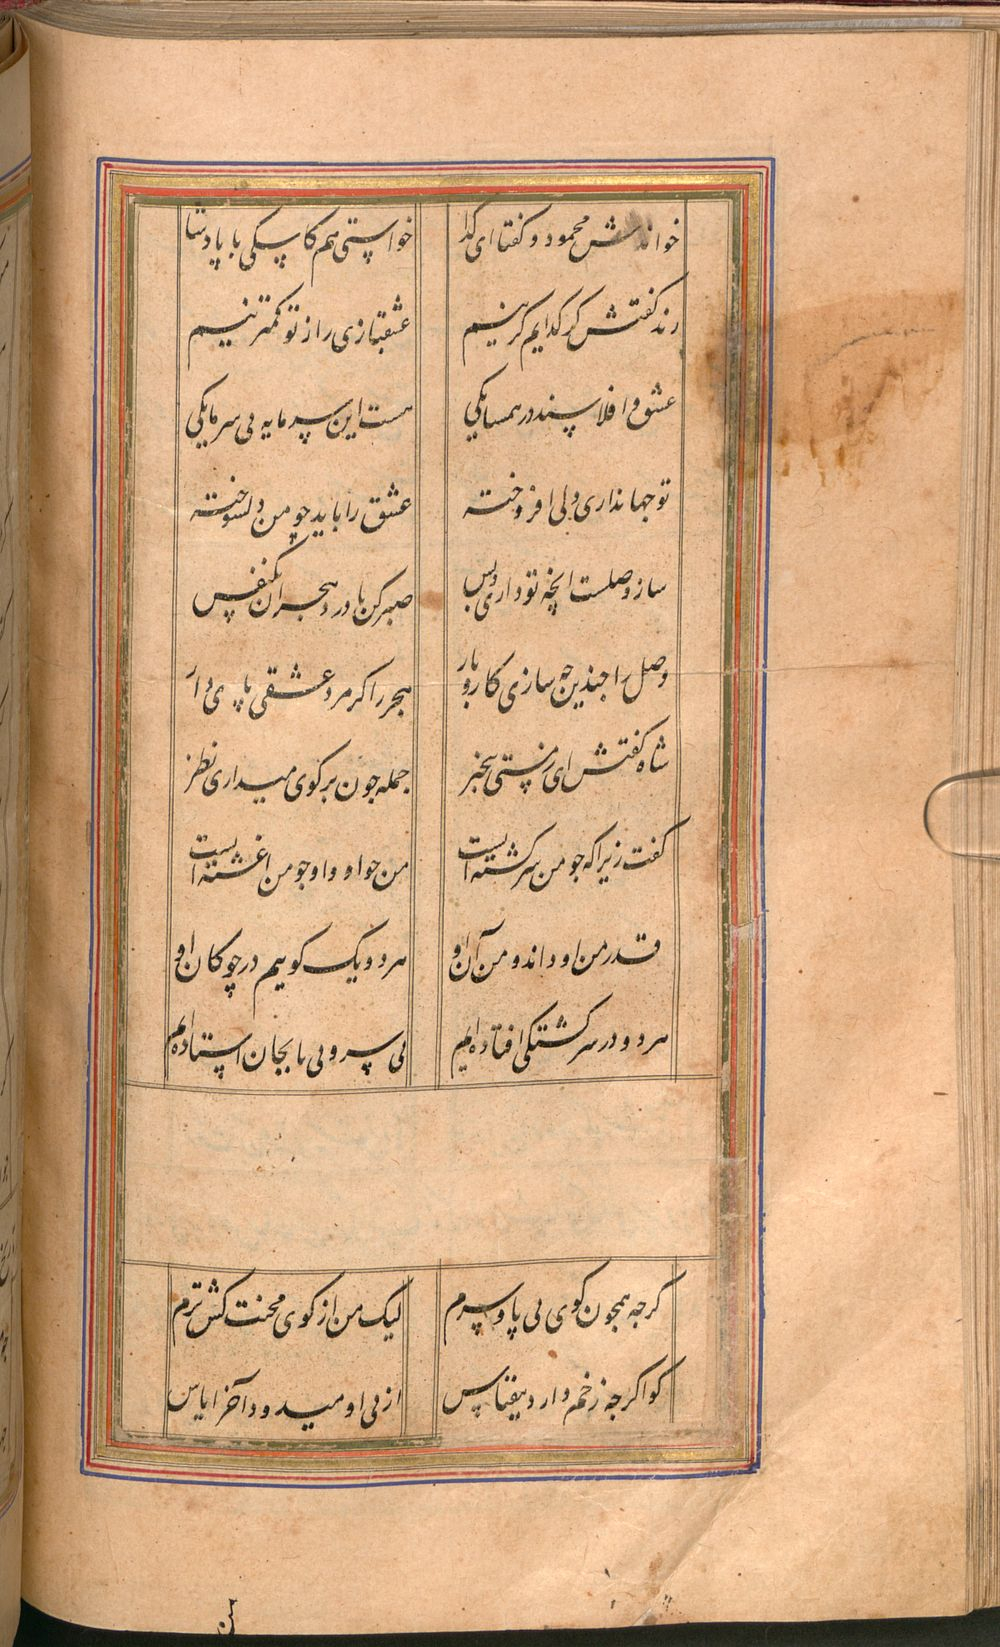 خواندش محمود و کفتا ای کدا خواستی هم کاسکی با پادشا
رند کفتش کر کدایم کر نیم عشقبازی را ز تو کمتر نیم
عشق و افلاسند در همسایکی هست این سرمایه بی سرمایکی
تو جهانداری دلی افروخته عشق را باید چو من دلسوخته
ساز وصلست انچه تو داری و بس صبر کن با درد هجران یکنفس
وصل را چندین چه سازی کار و بار هجر را کر مرد عشقی پای دار
شاه کفتش ای ز هستی بیخبر جمله چون بر کوی میداری نظر
کفت زیرا که چو من سرکشته است من چو او و او چو من اغشته است
قدر من او داند و من آن او هر دو یک کوییم در چوکان او
هر دو در سرکشتکی افتاده‌ایم بی سر و بی پا بجان استاده‌ایم
کرچه همچون کوی بی پا و سرم لیک من از کوی محنت کش ترم
کو اکرچه زخم دارد بیقیاس از پی او میدود آخر ایاس